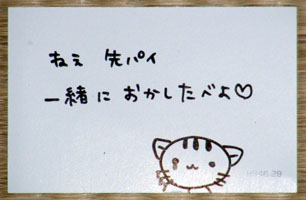 ねぇ 先パイ
一緒に おかしたべよ♡